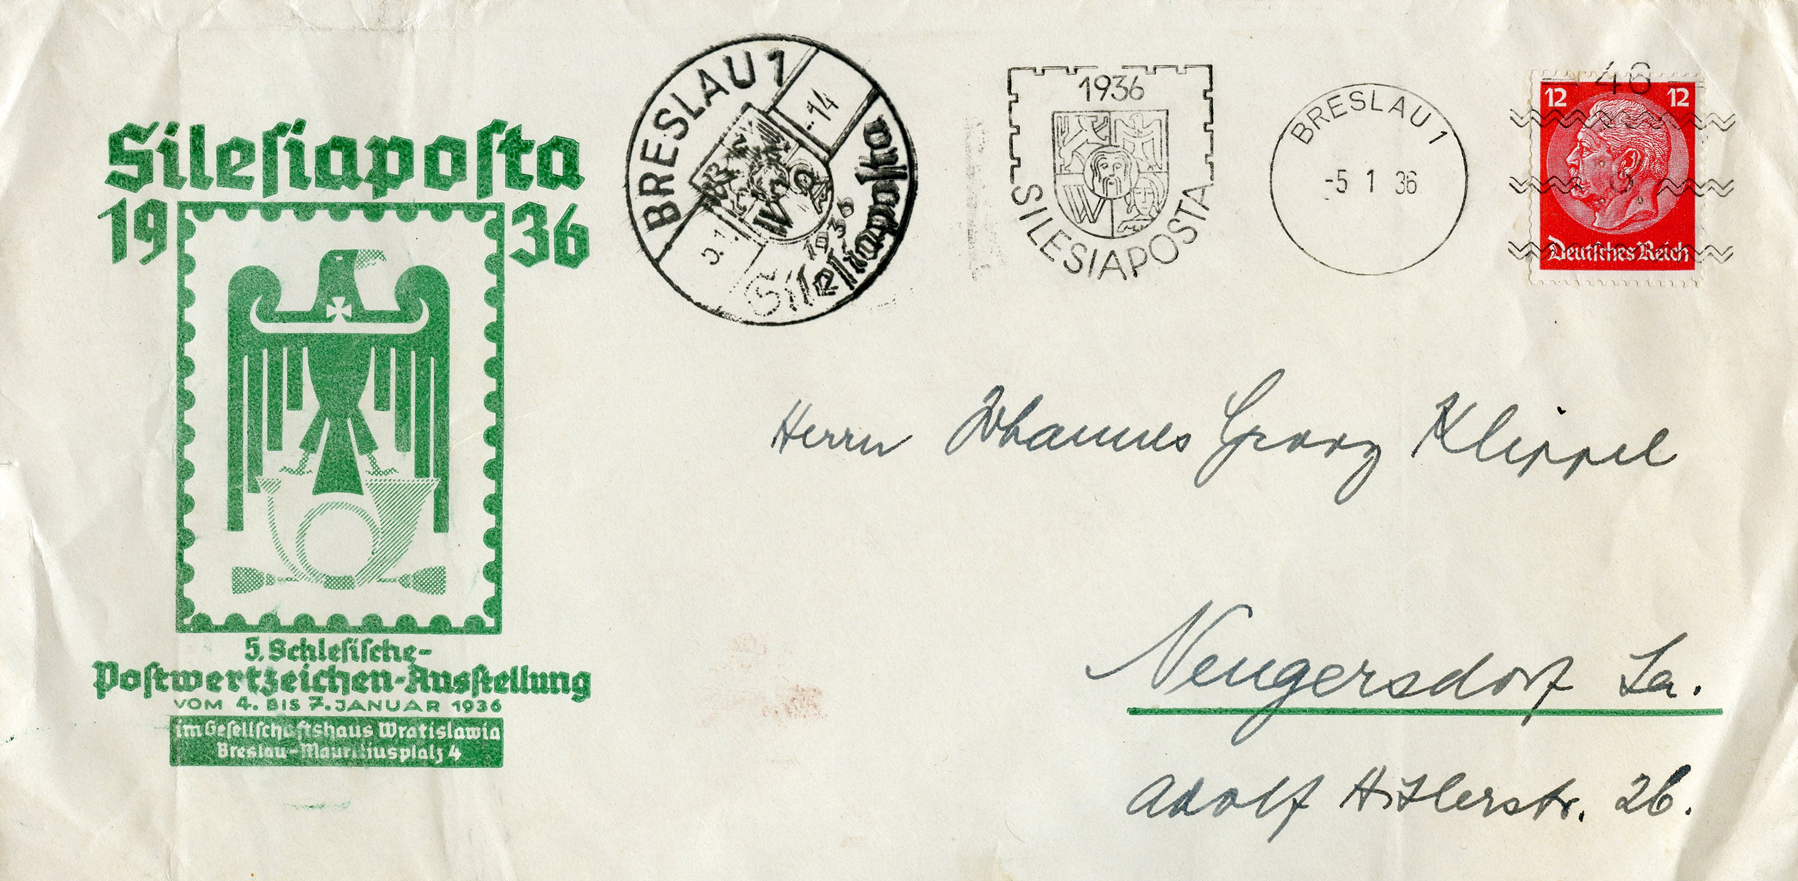 Sileſiapoſta
19 36
5. Schleſiſche-
Poſtwertzeichen-Ausſtellung
VOM 4. BIS 7. JANUAR 1936
im Geſellſchaftshaus Wratislawia
Breslau-Mauritiusplatz 4
BRESLAU 1
-14
5.1.
1936
Sileſiapoſta
1936
SILESIAPOSTA
BRESLAU 1
-5 1 36
12 12
Deutſches Reich
Herrn Johannes Georg Klippel
Neugersdorf Sa.
Adolf Hitlerstr. 26.